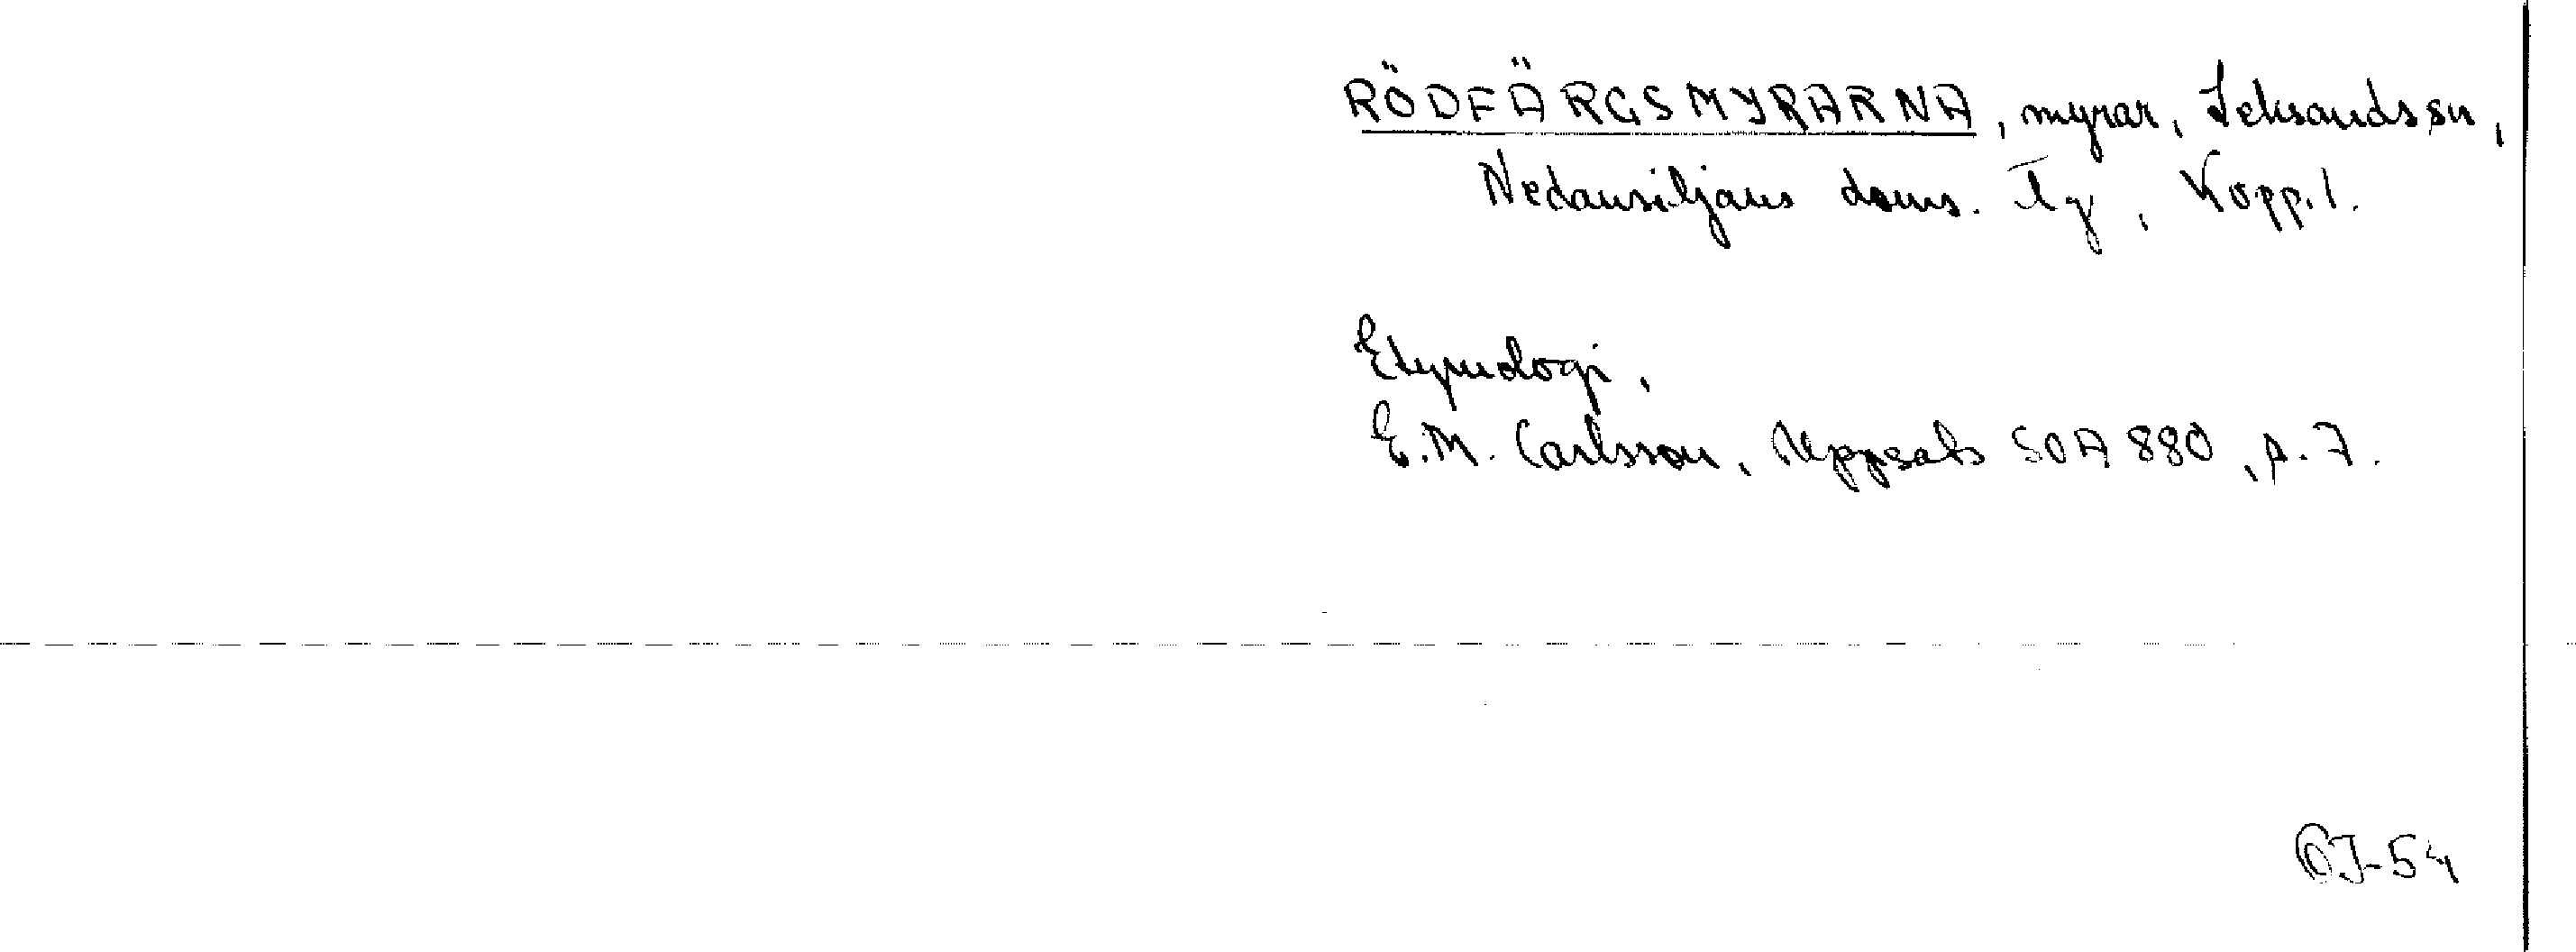 RÖDFÄRGSMYRARNA, myrar, Leksands sn,
Nedansiljans doms. tg, Kopp. l.
Etymologi,
E.M. Carlsson, Uppsats SOA 880, s. 7.
OJ-54